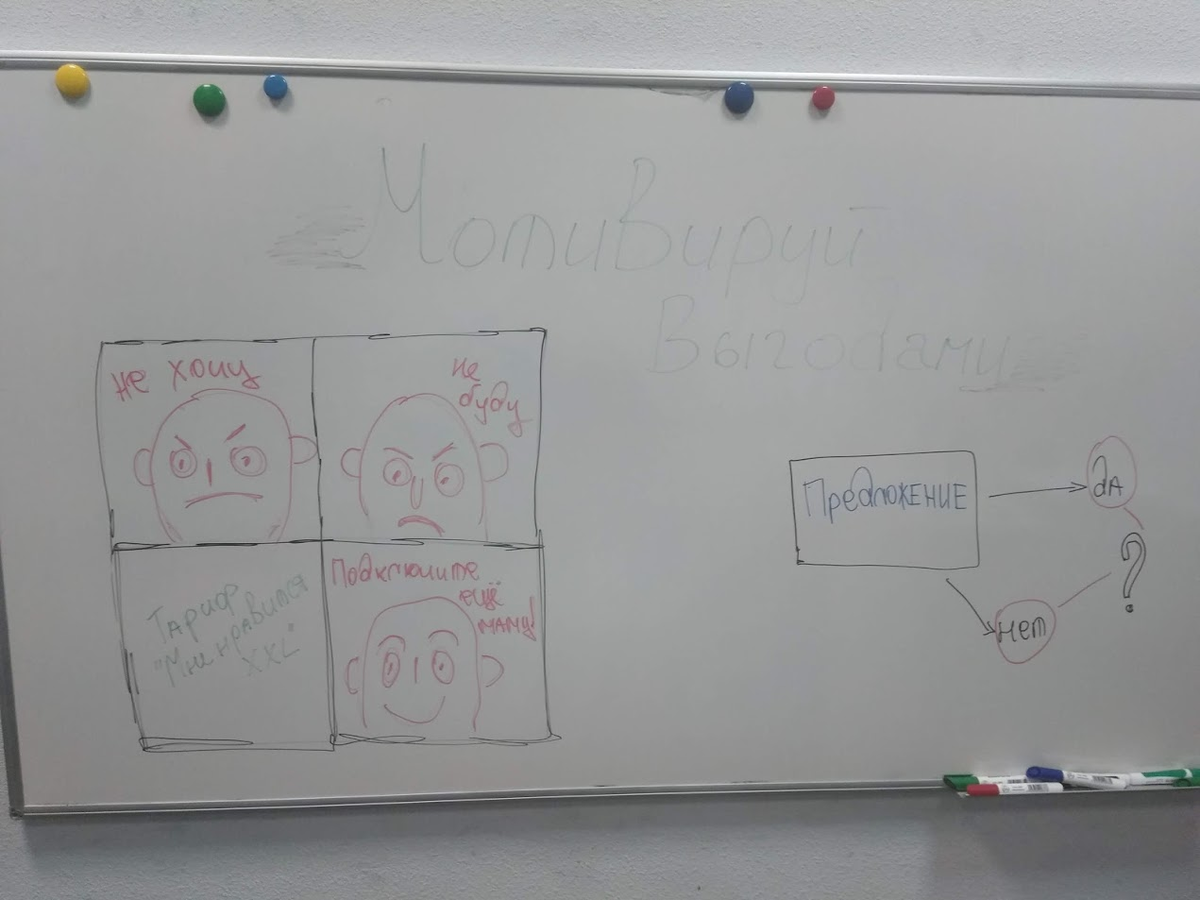 Мотивируй
Выгодами
не хочу
не
буду
Тариф
"Мне нравится
XXL"
Подключите
ещё
маму!
Предложение
да
?
нет